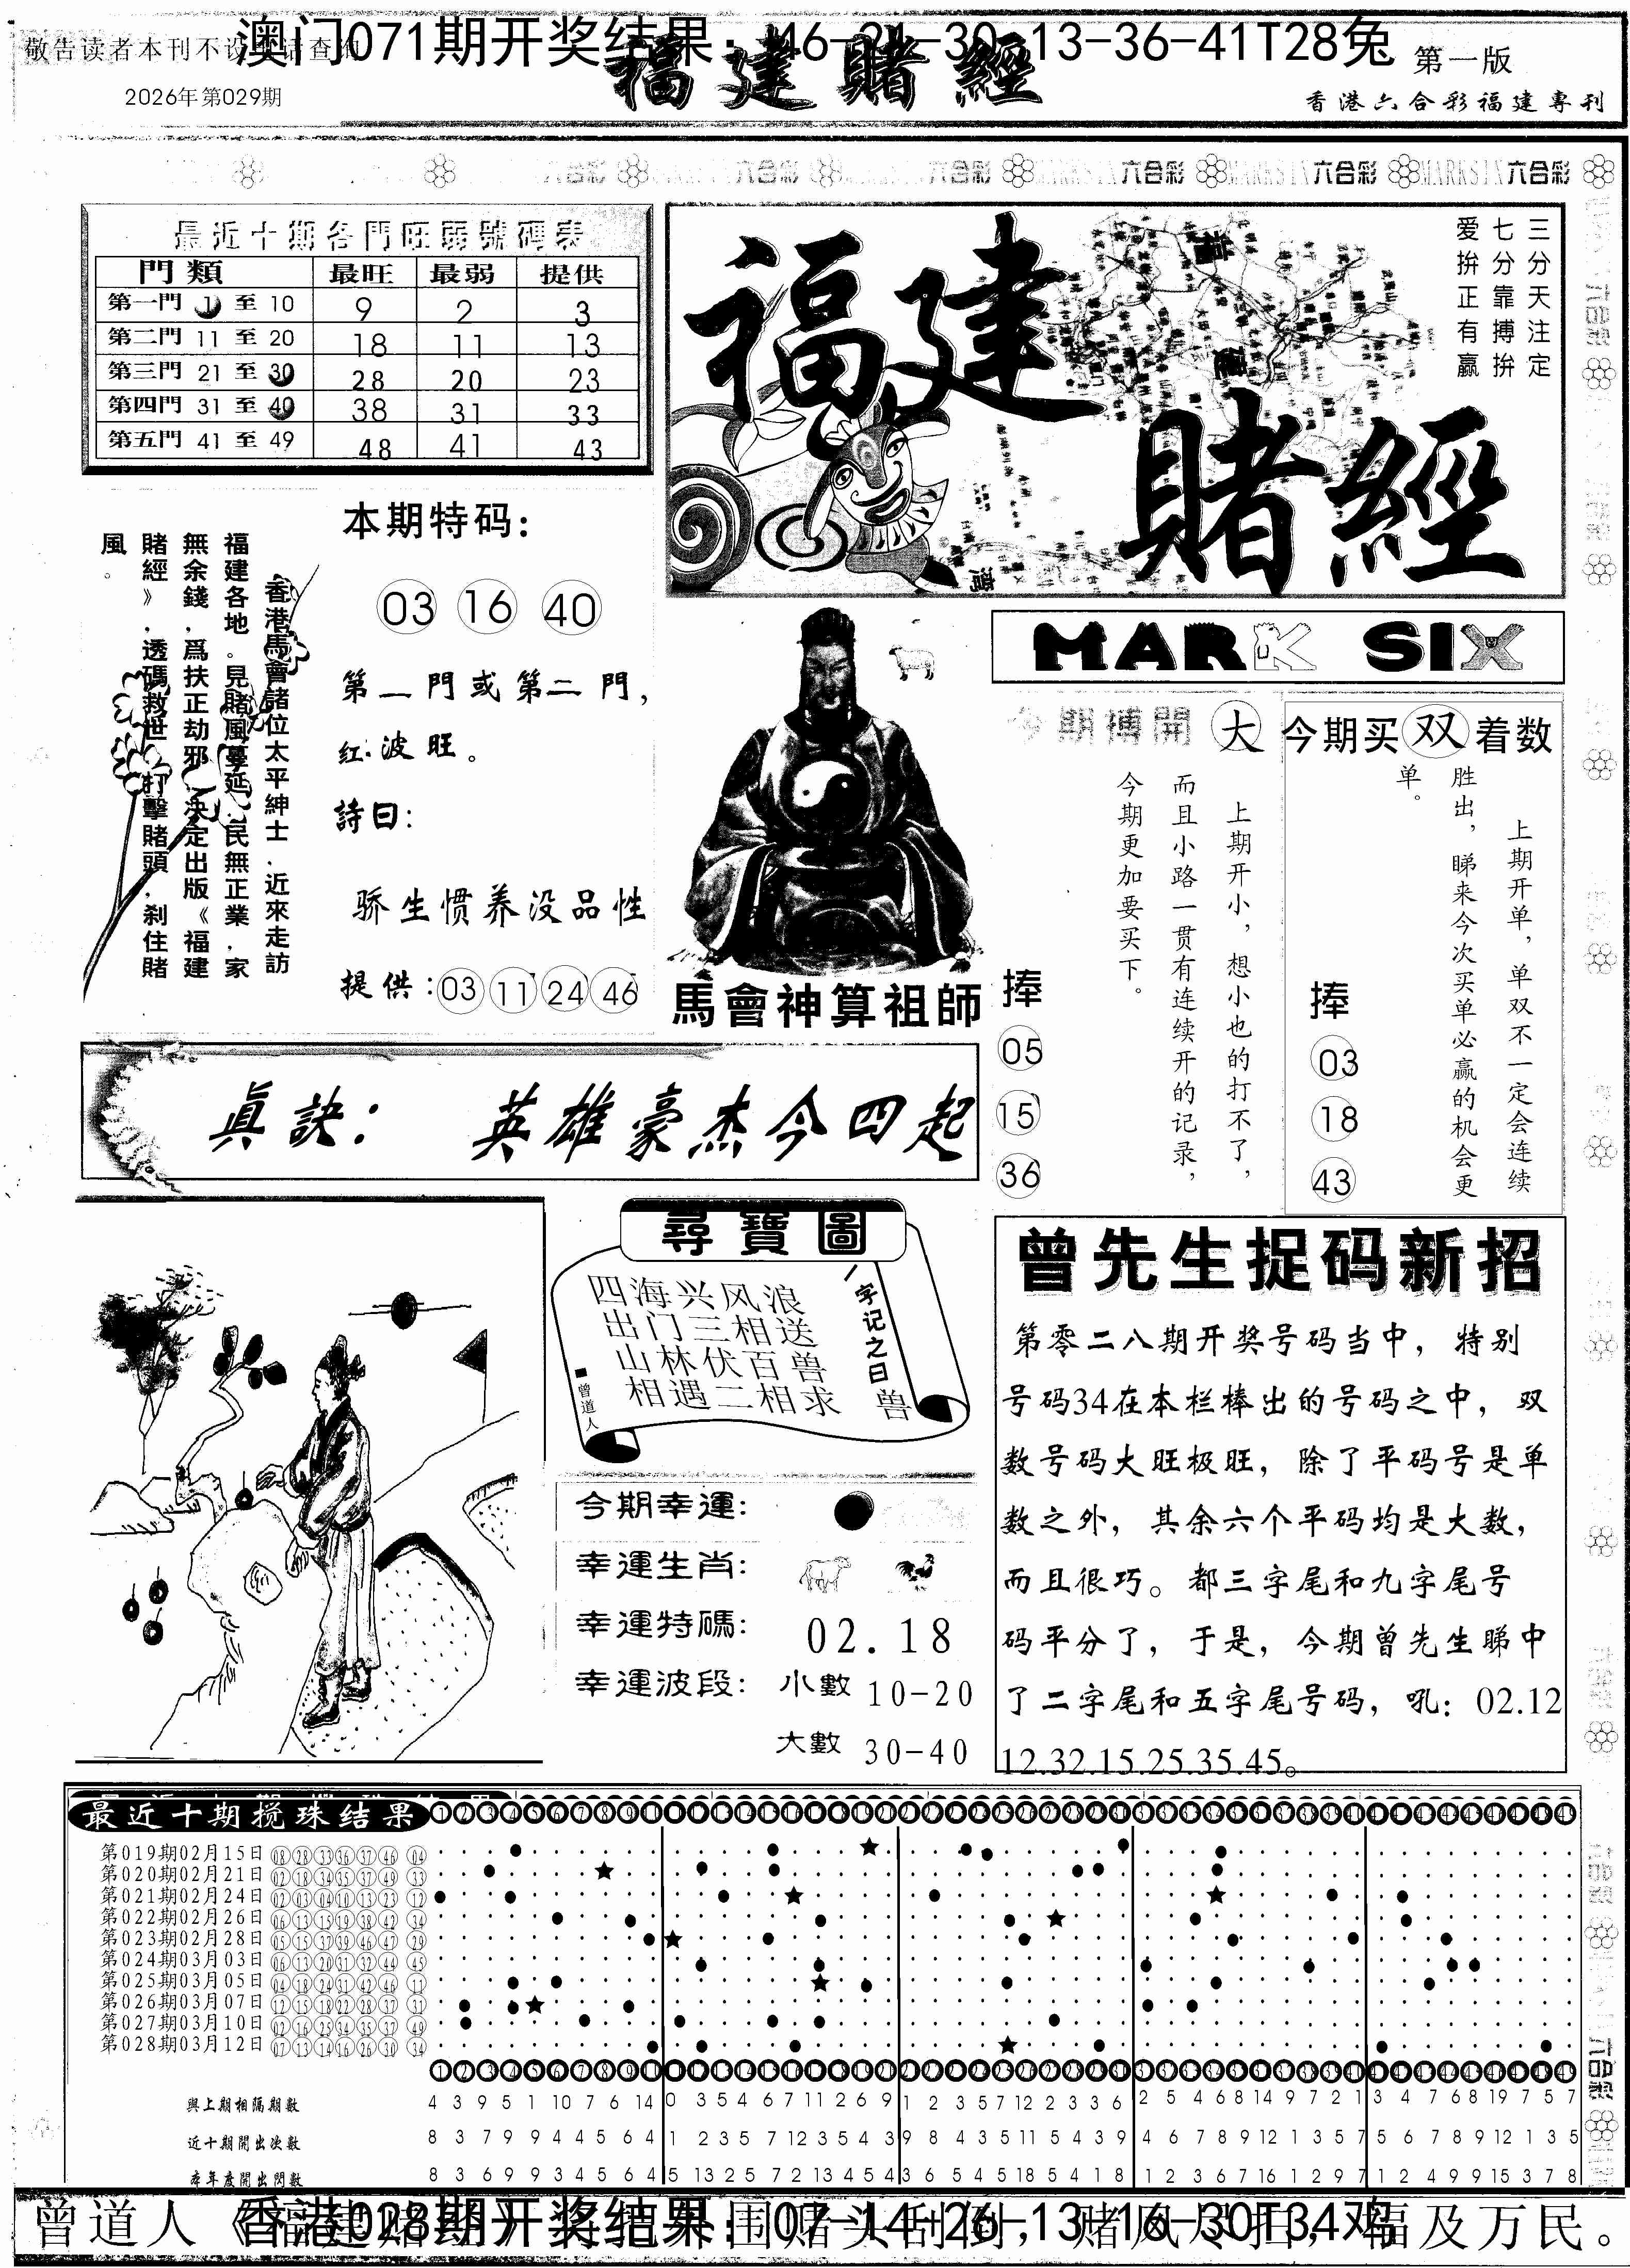 澳门071期开奖结果：46-21-30-13-36-41T28兔
敬告读者本刊不设电话查询
福建賭經
第一版
2026年第029期
香港六合彩福建專刊
六合彩 六合彩 六合彩 MARKSIX六合彩 MARKSIX六合彩 MARKSIX六合彩
最近十期各門旺弱號碼表
門類 最旺 最弱 提供
第一門 1 至 10 9 2 3
第二門 11 至 20 18 11 13
第三門 21 至 30 28 20 23
第四門 31 至 40 38 31 33
第五門 41 至 49 48 41 43
福建
賭經
三分天注定
七分靠搏拚
爱拚正有赢
香港馬會諸位太平紳士，近來走訪
福建各地。見賭風蔓延，民無正業，家
無余錢，爲扶正劫邪，决定出版《福建
賭經》，透碼救世，打擊賭頭，刹住賭
風。
本期特码：
03 16 40
第一門或第二門，
红波旺。
詩曰：
骄生惯养没品性
提供：03 11 24 46
馬會神算祖師
MARK SIX
今期搏開 大
上期开小，想小也的打不了，
而且小路一贯有连续开的记录，
今期更加要买下。
捧
05
15
36
今期买 双 着数
上期开单，单双不一定会连续
胜出，睇来今次买单必赢的机会更
单。
捧
03
18
43
真訣： 英雄豪杰今四起
尋寶圖
四海兴风浪
出门三相送
山林伏百兽
相遇二相求
一字记之曰 兽
■曾道人
今期幸運：
幸運生肖：
幸運特碼： 02.18
幸運波段： 小數 10-20
大數 30-40
曾先生捉码新招
第零二八期开奖号码当中，特别
号码34在本栏棒出的号码之中，双
数号码大旺极旺，除了平码号是单
数之外，其余六个平码均是大数，
而且很巧。都三字尾和九字尾号
码平分了，于是，今期曾先生睇中
了二字尾和五字尾号码，吼：02.12
12.32.15.25.35.45。
最近十期搅珠结果
第019期02月15日 08 28 33 36 37 46 04
第020期02月21日 02 18 34 35 37 49 33
第021期02月24日 02 03 04 10 13 23 12
第022期02月26日 06 13 15 19 38 42 34
第023期02月28日 05 15 37 39 46 47 29
第024期03月03日 06 13 20 31 32 44 45
第025期03月05日 04 18 24 31 42 46 11
第026期03月07日 12 15 18 22 28 37 31
第027期03月10日 02 16 25 34 35 37 49
第028期03月12日 07 13 14 16 26 30 34
與上期相隔期數 4 3 9 5 1 10 7 6 14 0 3 5 4 6 7 11 2 6 9 1 2 3 5 7 12 2 3 3 6 2 5 4 6 8 14 9 7 2 1 3 4 7 6 8 19 7 5 7
近十期開出次數 8 3 7 9 9 4 4 5 6 4 1 2 3 5 7 12 3 5 4 3 9 8 4 3 5 11 5 4 3 9 4 6 7 8 9 12 1 3 5 7 5 6 7 8 9 12 1 3 5
本年度開出閃數 8 3 6 9 9 3 4 5 6 4 5 13 2 5 7 2 13 4 5 4 3 6 5 4 5 18 5 4 1 8 1 2 3 6 7 16 1 2 9 7 1 2 4 9 9 15 3 7 8
香港028期开奖结果：07-14-26-13-16-30T34鸡
曾道人《福建賭经》 围赌头 赌风 福及万民。